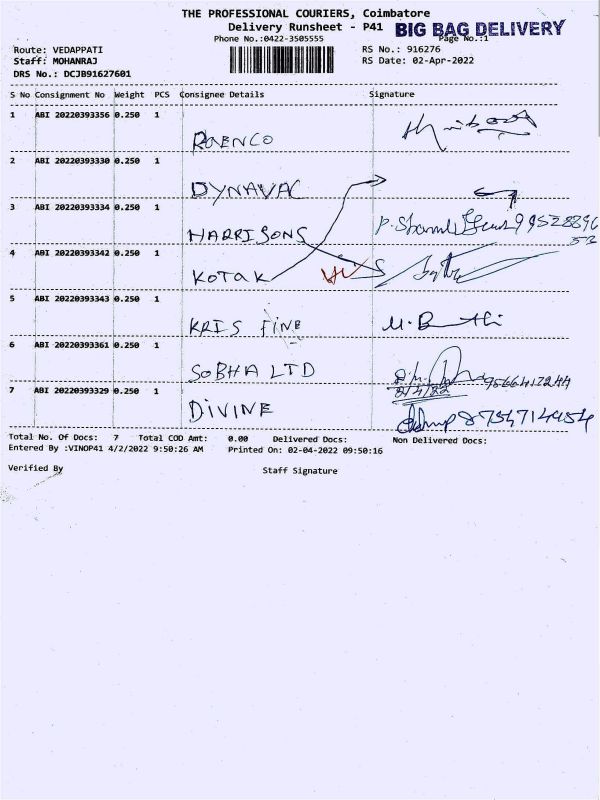 THE PROFESSIONAL COURIERS, Coimbatore
Delivery Runsheet - P41 BIG BAG DELIVERY
Phone No.:0422-3505555 Page No.:1
Route: VEDAPPATI RS No.: 916276
Staff: MOHANRAJ RS Date: 02-Apr-2022
DRS No.: DCJB91627601
S No Consignment No Weight PCS Consignee Details Signature
1 ABI 20220393356 0.250 1
ROENCO
2 ABI 20220393330 0.250 1
DYNAVAC
3 ABI 20220393334 0.250 1
HARRISONS
4 ABI 20220393342 0.250 1
KOTAK
5 ABI 20220393343 0.250 1
KRIS FINE
6 ABI 20220393361 0.250 1
SOBHA LTD
2/4/22
7 ABI 20220393329 0.250 1
DIVINE 8754714954
Total No. Of Docs: 7 Total COD Amt: 0.00 Delivered Docs: Non Delivered Docs:
Entered By :VINOP41 4/2/2022 9:50:26 AM Printed On: 02-04-2022 09:50:16
Verified By Staff Signature